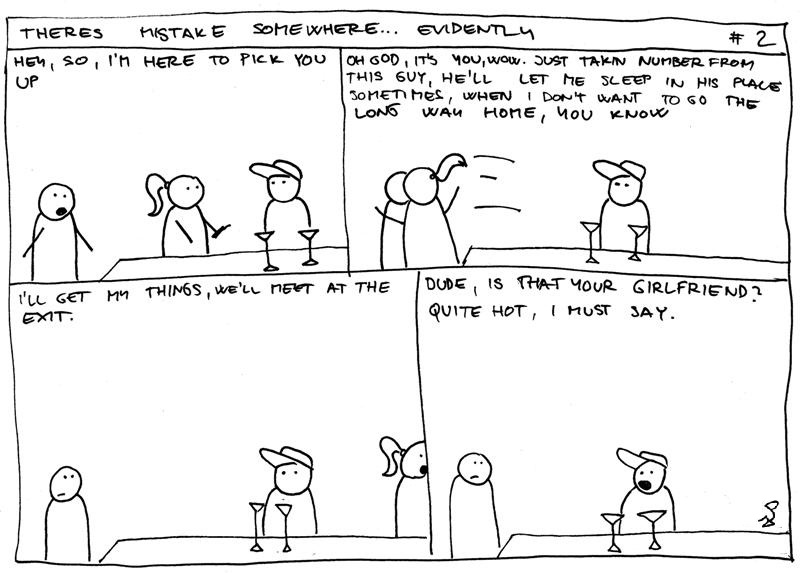 THERES MISTAKE SOMEWHERE... EVIDENTLY
# 2
HEY, SO, I'M HERE TO PICK YOU
UP
OH GOD, IT'S YOU, WOW. JUST TAKIN NUMBER FROM
THIS GUY, HE'LL LET ME SLEEP IN HIS PLACE
SOMETIMES, WHEN I DON'T WANT TO GO THE
LONG WAY HOME, YOU KNOW
I'LL GET MY THINGS, WE'LL MEET AT THE
EXIT.
DUDE, IS THAT YOUR GIRLFRIEND?
QUITE HOT, I MUST SAY.